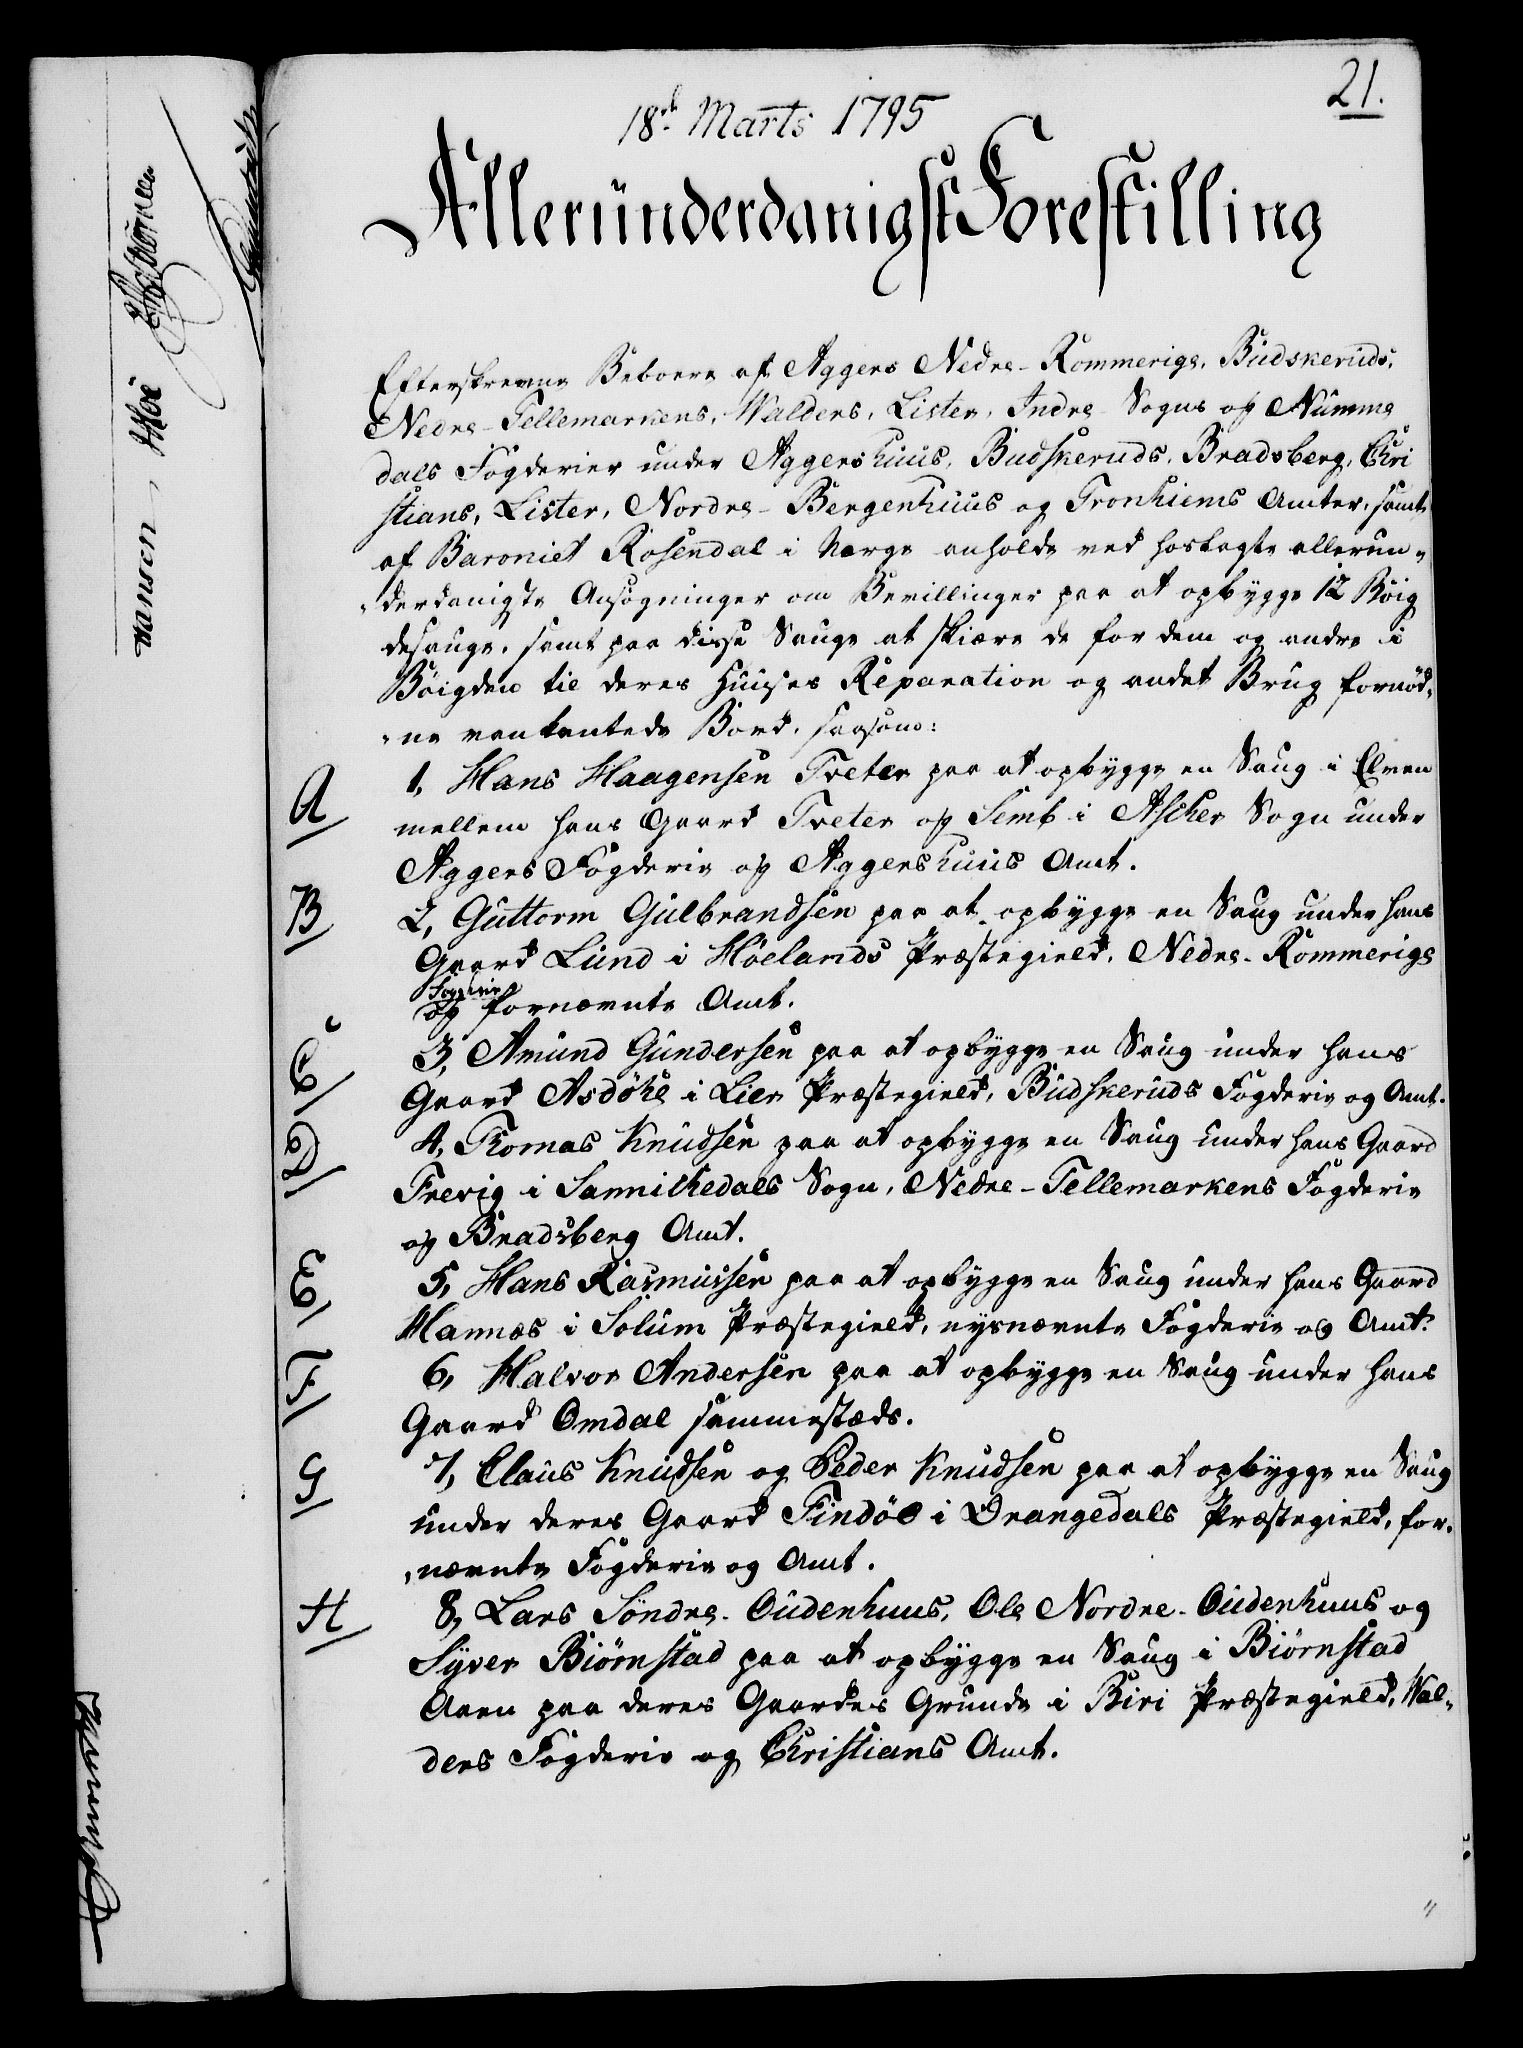 21.
18de Marts 1795
Alleründerdanigst Forestilling
Efterskrevne Beboere af Aggers Nedre-Rommerigs, Büdskerüds,
Nedre-Tellemarkens, Walders, Lister, Indre Sogns og Nümme
dals Fögderier under Aggershuus, Budskeruds, Bradsberg, Chri
stians, Lister, Nordre-Bergenhuus og Tronhiems Amter, samt
af Baroniet Rosendal i Norge anholde ved hoslagte allerun„
„derdanigste Ansögninger om Bevillinger paa at opbygge 12 Böig
desauge, samt paa disse Sauge at skiære de for dem og andre i
Böigden til deres Huuses Reparation og andet Brug fornöd„
„ne vankantede Bord, saasom:
A 1, Hans Haagensen Tveter paa at opbygge en Saug i Elven
mellem hans Gaard Tveter og Semb i Ascher Sogn under
Aggers Fögderie og Aggershuus Amt.
B 2, Guttorm Gulbrandsen paa at opbygge en Saug under hans
Gaard Lund i Höelands Præstegield, Nedre-Rommerigs
Fogderie
og fornævnte Amt.
C 3, Amund Gundersen paa at opbygge en Saug under hans
Gaard Asdöhl i Lier Præstegield, Budskeruds Fögderie og Amt.
D 4, Thomas Knudsen paa at opbygge en Saug under hans Gaard
Frevig i Sannikedals Sogn, Nedre-Tellemarkens Fögderie
og Bradsberg Amt.
E 5, Hans Rasmussen paa at opbygge en Saug under hans Gaard
Hannæs i Solum Præstegield, nysnævnte Fögderie og Amt.
F 6, Halvor Andersen paa at opbygge en Saug under hans
Gaard Omdal sammestæds.
G 7, Claus Knudsen og Peder Knudsen paa at opbygge en Saug
under deres Gaard Findöe i Drangedals Præstegield, for„
„nævnte Fögderie og Amt.
H 8, Lars Söndre-Oudenhuus, Ole Nordre-Oudenhuus og
Syver Biörnstad paa at opbygge en Saug i Biörnstad
Aaen paa deres Gaardes Grunde i Biri Præstegield, Wal„
ders Fögderie og Christians Amt.